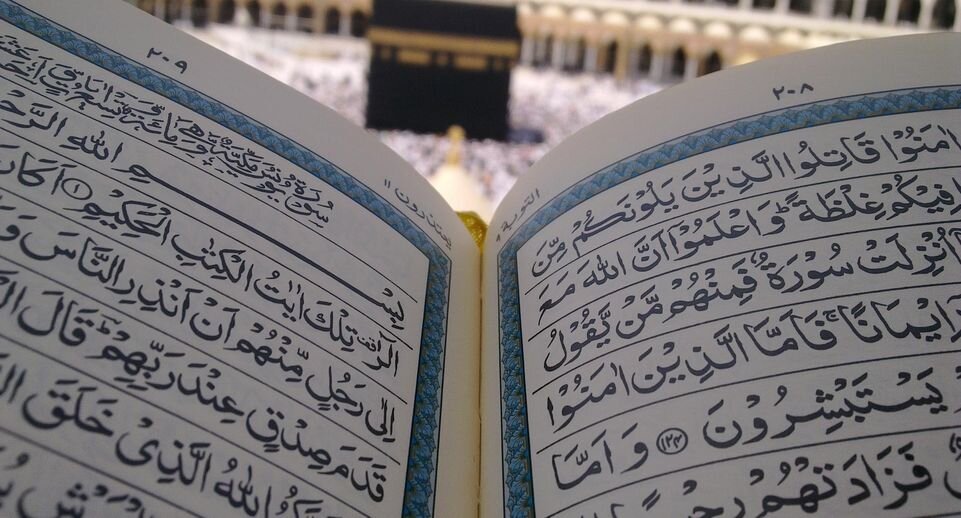 ٢٠٨
التوبة ٩
اٰمَنُوْا قَاتِلُوا الَّذِيْنَ يَلُوْنَكُمْ مِّنَ
فِيْكُمْ غِلْظَةً ؕ وَاعْلَمُوْۤا اَنَّ اللّٰهَ مَعَ
اُنْزِلَتْ سُوْرَةٌ فَمِنْهُمْ مَّنْ يَّقُوْلُ
اِيْمَانًا ۚ فَاَمَّا الَّذِيْنَ اٰمَنُوْا
يَسْتَبْشِرُوْنَ ﴿١٢٤﴾ وَاَمَّا
فَزَادَتْهُمْ رِجْسًا
٢٠٩
يعتذرون ١١
سُوْرَةُ يُوْنُسَ مَكِّيَّةٌ وَّهِىَ مِائَةٌ وَّتِسْعُ
بِسْمِ اللّٰهِ
الٓرٰ ۫ تِلْكَ اٰيٰتُ الْكِتٰبِ الْحَكِيْمِ ﴿١﴾ اَكَانَ
اِلٰى رَجُلٍ مِّنْهُمْ اَنْ اَنْذِرِ النَّاسَ
قَدَمَ صِدْقٍ عِنْدَ رَبِّهِمْ ؕ قَالَ
اللّٰهُ الَّذِيْ خَلَقَ